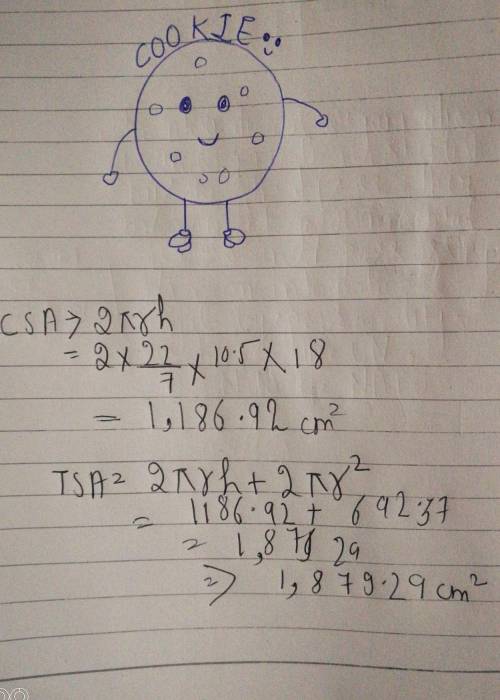 COOKIE
CSA > 2πrh
= 2 × 22/7 × 10.5 × 18
= 1,186.92 cm²
TSA = 2πrh + 2πr²
= 1186.92 + 692.37
= 1,879 29
⇒ 1,879.29 cm²